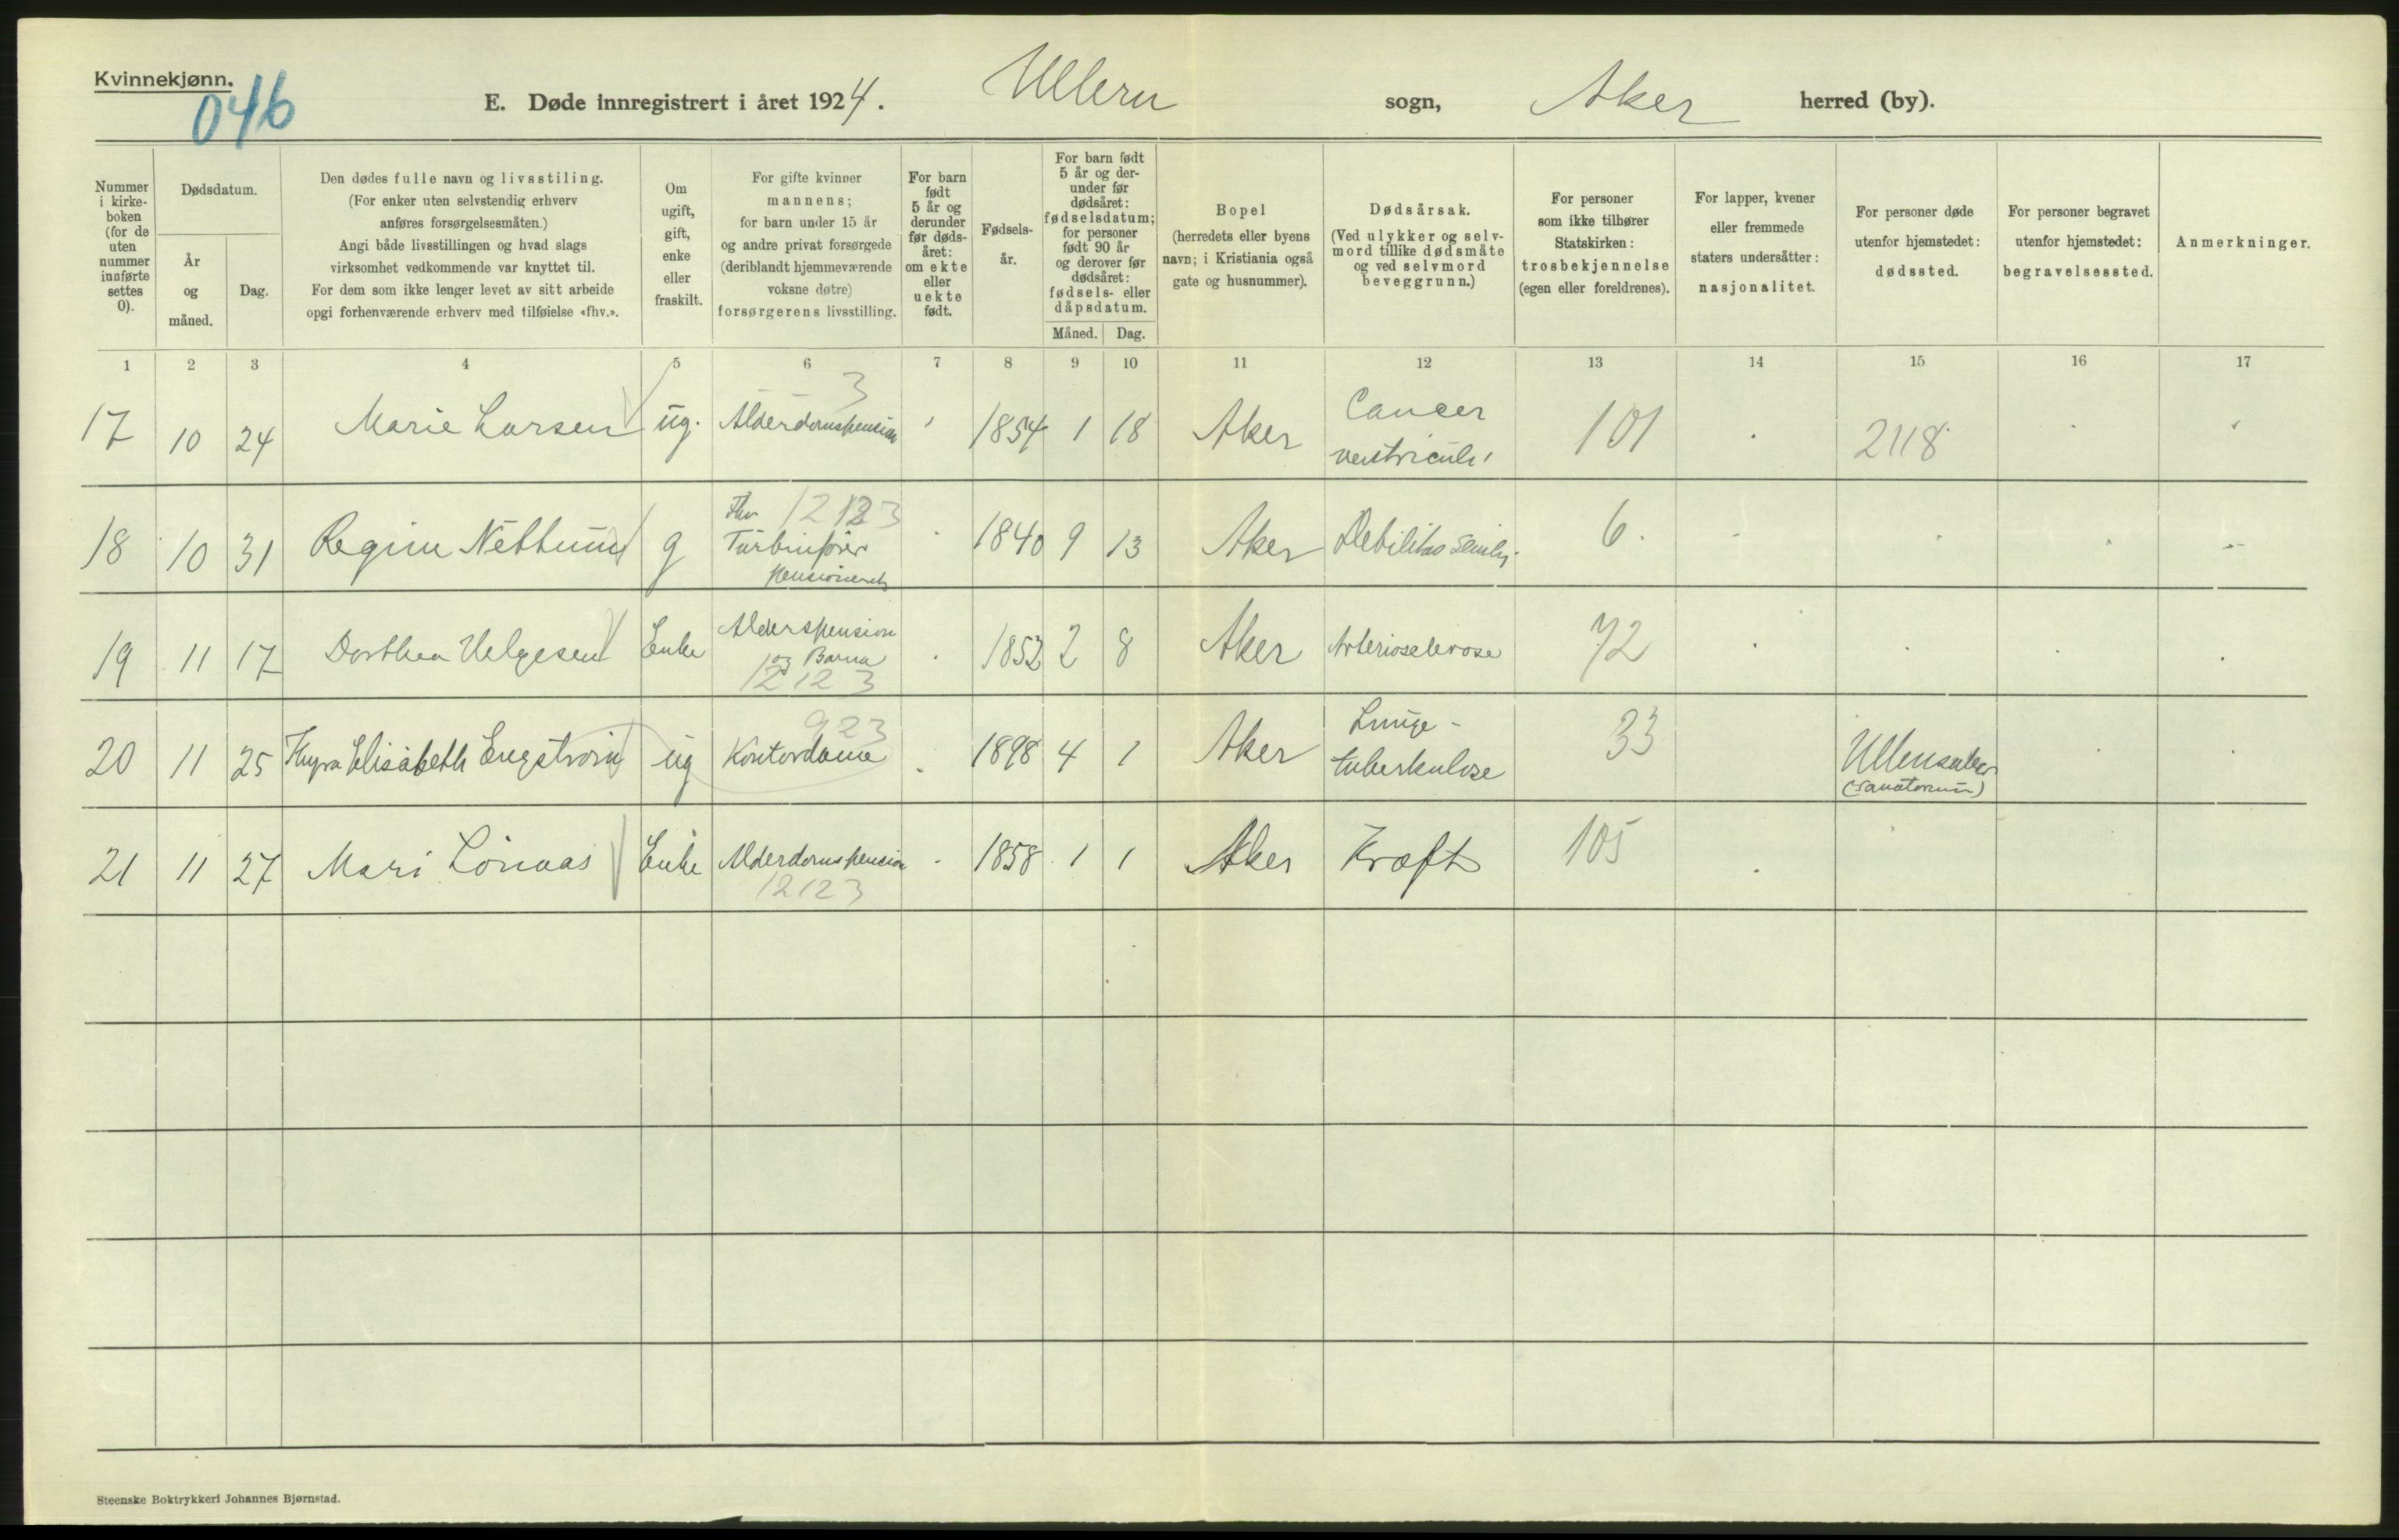 Kvinnekjønn.
046
E. Døde innregistrert i året 1924. Ullern sogn, Aker herred (by).
Nummer i kirke-boken (for de uten nummer innførte settes 0).
Dødsdatum.
År og måned.
Dag.
Den dødes fulle navn og livsstilling.
(For enker uten selvstendig erhverv
anføres forsørgelsesmåten.)
Angi både livsstillingen og hvad slags
virksomhet vedkommende var knyttet til.
For dem som ikke lenger levet av sitt arbeide
opgi forhenværende erhverv med tilføielse «fhv.».
Om ugift, gift, enke eller fraskilt.
For gifte kvinner
mannens;
for barn under 15 år
og andre privat forsørgede
(deriblandt hjemmeværende
voksne døtre)
forsørgerens livsstilling.
For barn født 5 år og derunder før døds-året: om ekte eller uekte født.
Fødsels-år.
For barn født 5 år og der-under før dødsåret: fødselsdatum; for personer født 90 år og derover før dødsåret: fødsels- eller dåpsdatum.
Måned. Dag.
Bopel
(herredets eller byens
navn; i Kristiania også
gate og husnummer).
Dødsårsak.
(Ved ulykker og selv-
mord tillike dødsmåte
og ved selvmord
beveggrunn.)
For personer
som ikke tilhører
Statskirken:
trosbekjennelse
(egen eller foreldrenes).
For lapper, kvener
eller fremmede
staters undersåtter:
nasjonalitet.
For personer døde
utenfor hjemstedet:
dødssted.
For personer begravet
utenfor hjemstedet:
begravelsessted.
Anmerkninger.
1 2 3 4 5 6 7 8 9 10 11 12 13 14 15 16 17
3
17 10 24 Marie Larsen ug. Alderdomspension 1854 1 18 Aker Cancer ventriculi 101 2118
18 10 31 Regine g Fhv Turbinfører Pensionert 1840 9 13 Aker Debilitas senilis 6.
19 11 17 Dorthea Helgesen Enke Alderspension og Barna 12 12 3 1852 2 8 Aker Arteriosclerose 72
923
20 11 25 Thyra Elisabeth Engstrøm ug Kontordame 1898 4 1 Aker Lunge-tuberkulose 33 Ullensaker (sanatorium)
21 11 27 Mari Lönaas Enke Alderdomspension 12123 1858 1 1 Aker Kræft 105
Steenske Boktrykkeri Johannes Bjørnstad.